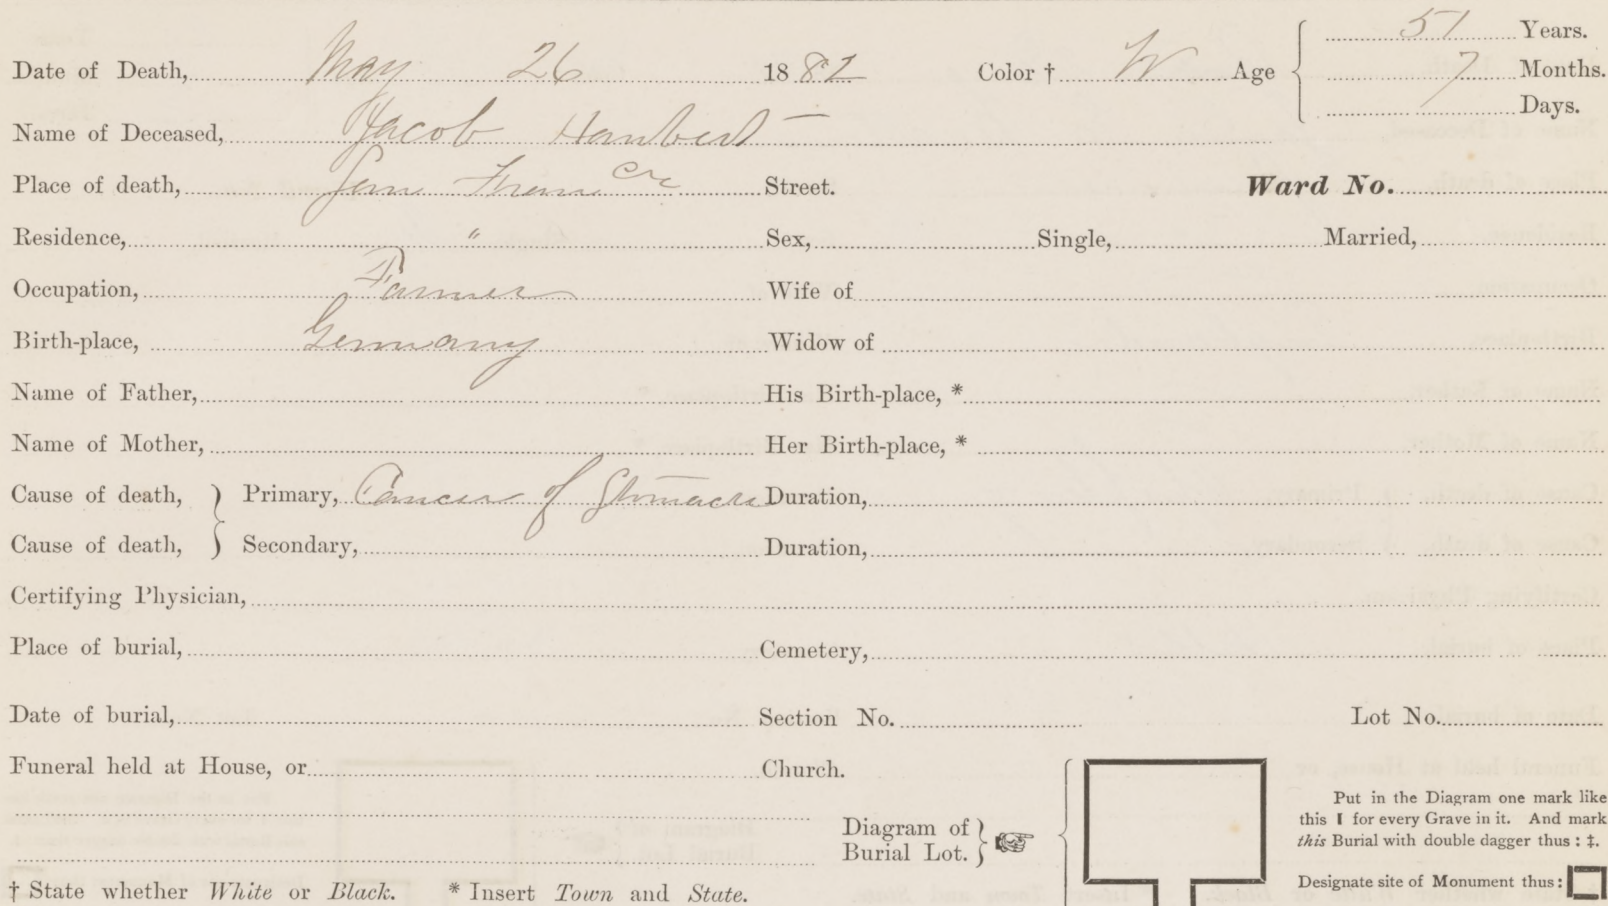 Date of Death, May 26 1882 Color † W Age 51 Years.
7 Months.
Days.
Name of Deceased, Jacob Haubert
Place of death, San Fran Street. Ward No.
Residence, " Sex, Single, Married,
Occupation, Farmer Wife of
Birth-place, Germany Widow of
Name of Father, His Birth-place, *
Name of Mother, Her Birth-place, *
Cause of death, } Primary, Cancer of Stomach Duration,
Cause of death, } Secondary, Duration,
Certifying Physician,
Place of burial, Cemetery,
Date of burial, Section No. Lot No.
Funeral held at House, or Church.
Diagram of
Burial Lot. }
Put in the Diagram one mark like
this I for every Grave in it. And mark
this Burial with double dagger thus : ‡.
Designate site of Monument thus :
† State whether White or Black. * Insert Town and State.